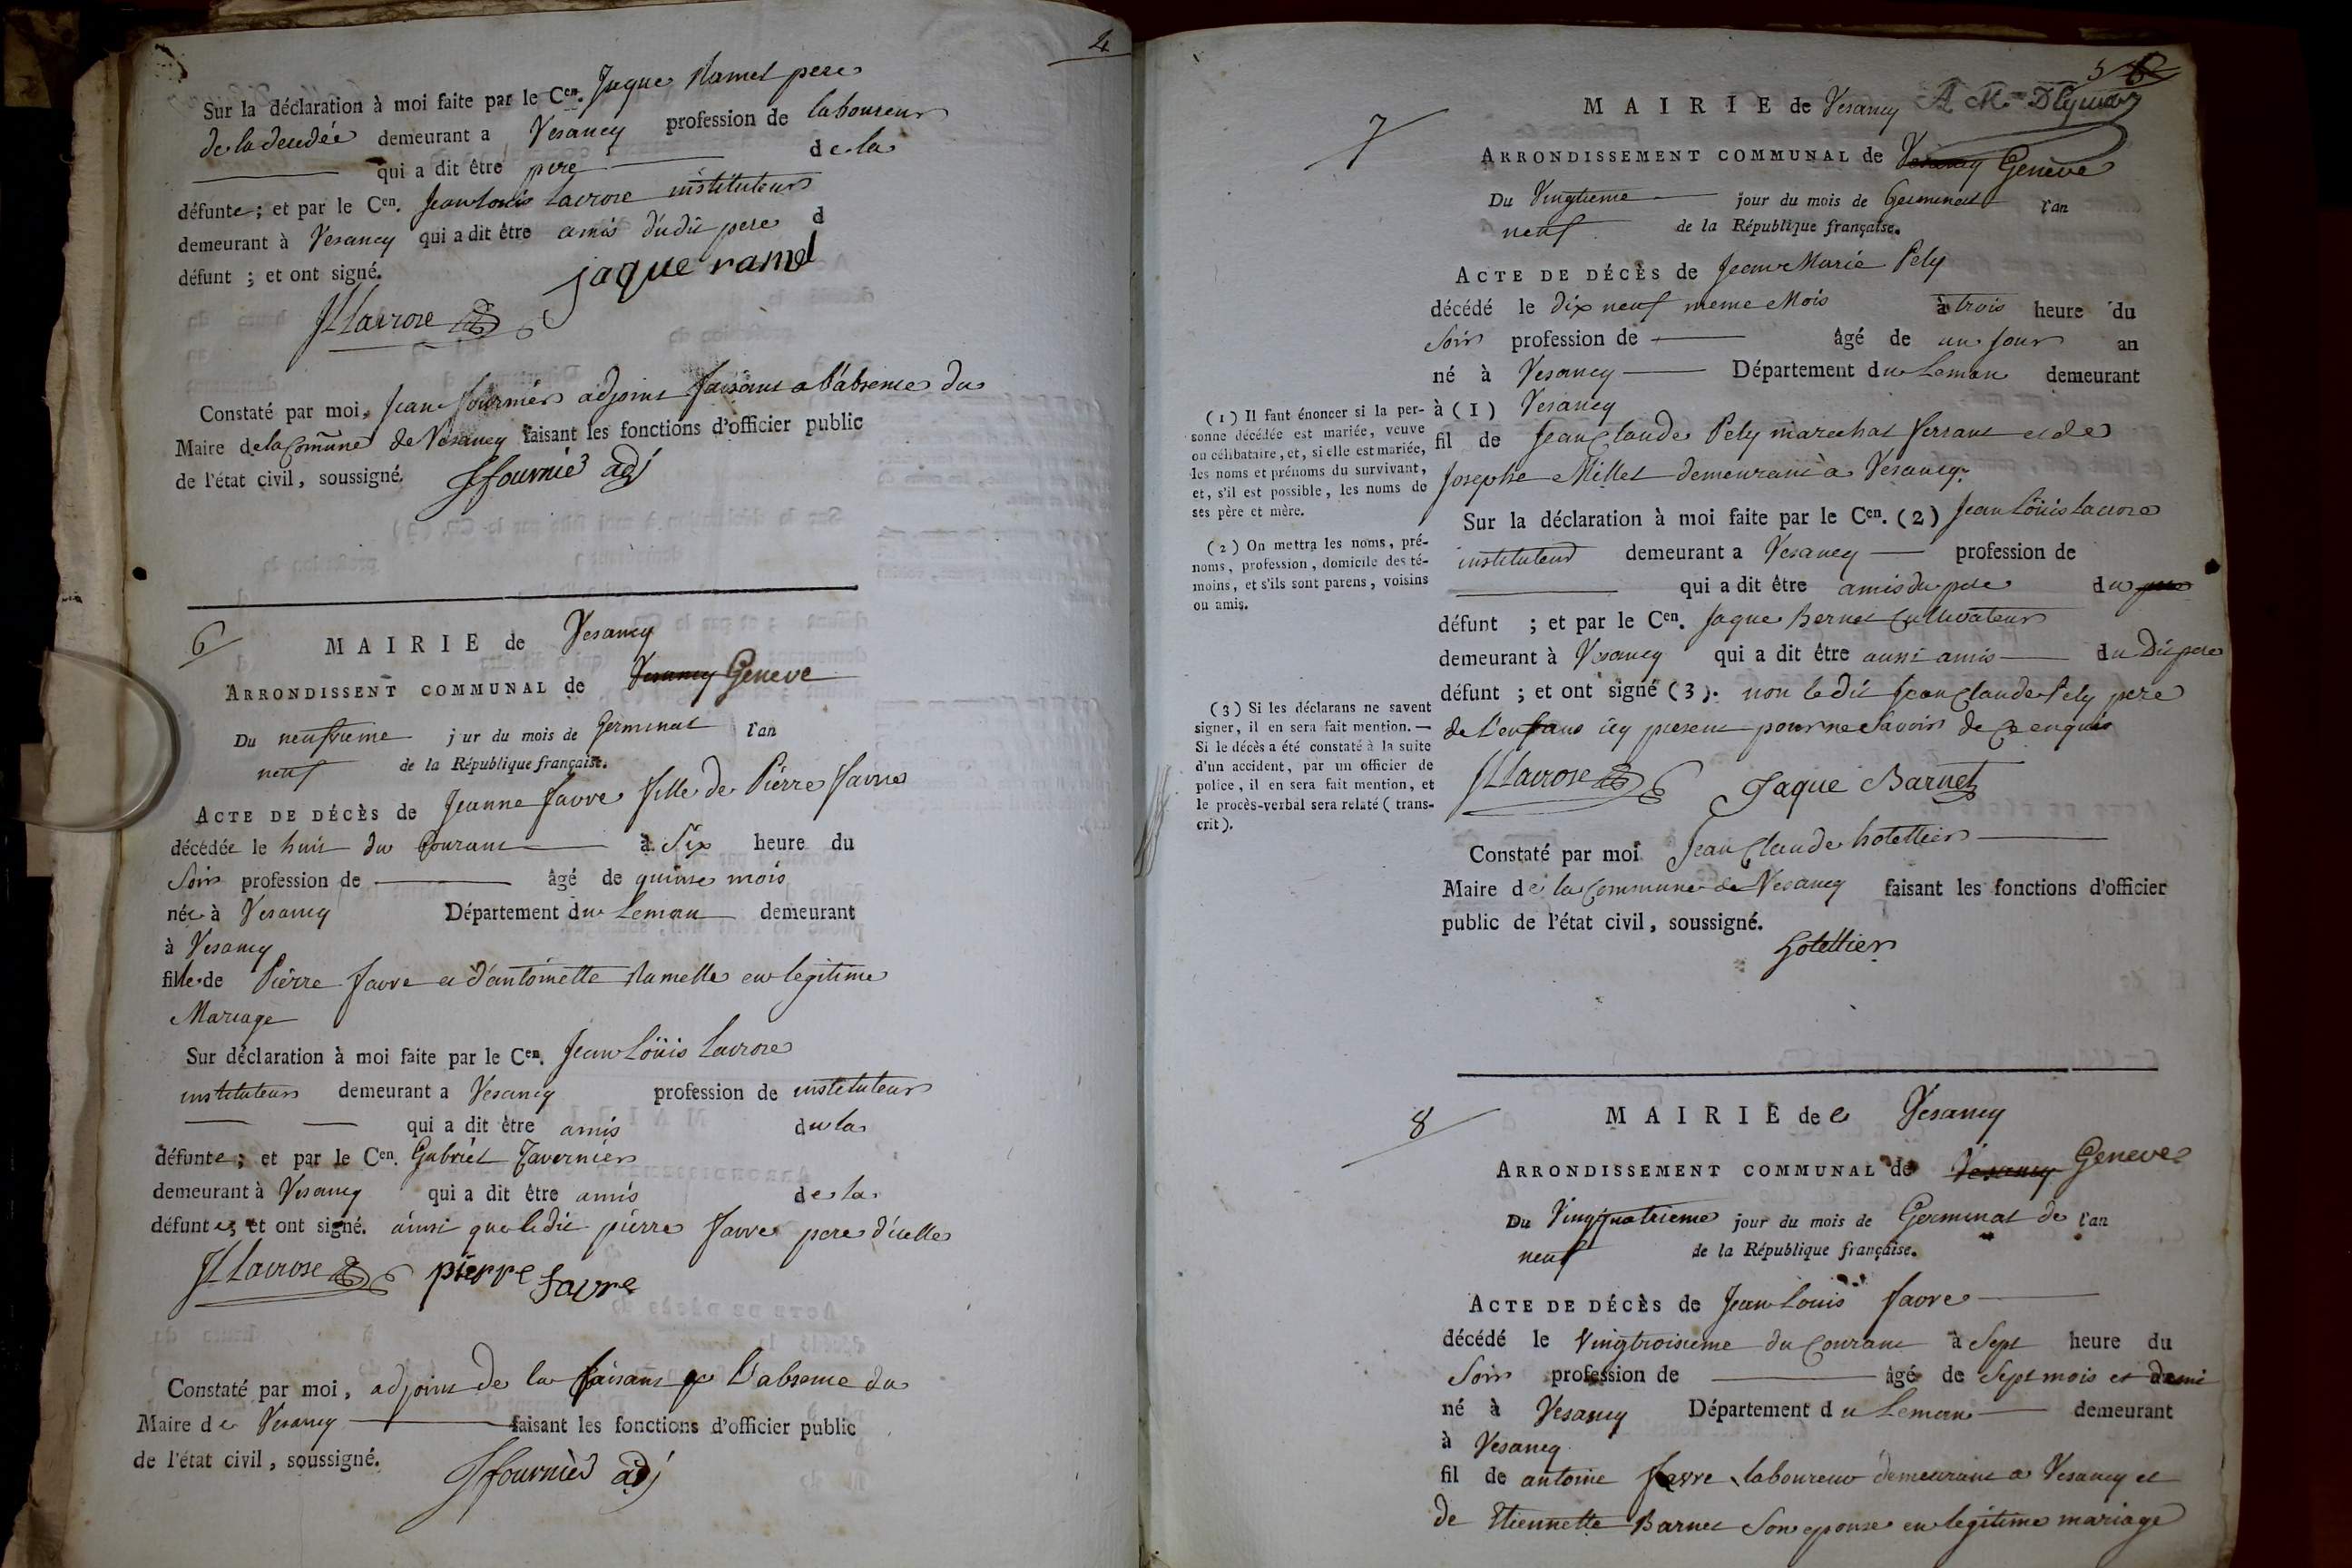 4
Sur la déclaration à moi faite par le Cen. Jaque Ramel pere
de la decedée demeurant a Vesancy profession de laboureur
qui a dit être pere de la
défunte; et par le Cen. Jean Louis Lacrose instituteur
demeurant à Vesancy qui a dit être amis dudit pere d
défunt ; et ont signé.
jaque ramel
JLLacrose
Constaté par moi, Jean fournier adjoint faisant a l'absence du
Maire de la Comune de Vesancy faisant les fonctions d'officier public
de l'état civil, soussigné.
Jfournier adj
6
MAIRIE de Vesancy
ARRONDISSENT COMMUNAL de Vesancy Geneve
Du neufvieme j ur du mois de Germinal l'an
neuf de la République française.
ACTE DE DÉCÈS de Jeanne favre fille de Pierre favre
décédée le huit du Courant à Six heure du
Soir profession de âgé de quinse mois
née à Vesancy Département du Leman demeurant
à Vesancy
fille de Pierre favre et d'antoinette Ramelle en legitime
Mariage
Sur déclaration à moi faite par le Cen. Jean Loüis Lacrose
instituteur demeurant a Vesancy profession de instituteur
qui a dit être amis du la
défunte; et par le Cen. Gabriel Tavernier
demeurant à Vesancy qui a dit être amis de la
défunte; et ont signé. ainsi que ledit pierre favre pere d'icelle
JLLacrose pierre favre
Constaté par moi, adjoint de la faisant a L'absence du
Maire de Vesancy faisant les fonctions d'officier public
de l'état civil, soussigné.
Jfournier adj
5 6
7
MAIRIE de Vesancy
ARRONDISSEMENT COMMUNAL de Vesancy Geneve
Du Vingtieme jour du mois de Germinal l'an
neuf de la République française.
ACTE DE DÉCÈS de Jean Marie Pely
décédé le dix neuf meme Mois à trois heure du
Soir profession de âgé de un jour an
né à Vesancy Département du Leman demeurant
à (1) Vesancy
fil de Jean Claude Pely marechal ferrant et de
Josephe Millet demeurant à Vesancy.
Sur la déclaration à moi faite par le Cen. (2) Jean Loüis Lacrose
instituteur demeurant a Vesancy profession de
qui a dit être amis du pere du pere
défunt ; et par le Cen. Jaque Bernet Cultivateur
demeurant à Vesancy qui a dit être aussi amis du Dit pere
défunt ; et ont signé (3). non ledit Jean Claude Pely pere
de L'enfant icy present pour ne Savoir de ce enquis
JLLacrose Jaque Barnet
Constaté par moi Jean Claude hotellier
Maire de la Commune de Vesancy faisant les fonctions d'officier
public de l'état civil, soussigné.
hotellier
(1) Il faut énoncer si la per-
sonne décédée est mariée, veuve
ou célibataire, et, si elle est mariée,
les noms et prénoms du survivant,
et, s'il est possible, les noms de
ses père et mère.
(2) On mettra les noms, pré-
noms, profession, domicile des té-
moins, et s'ils sont parens, voisins
ou amis.
(3) Si les déclarans ne savent
signer, il en sera fait mention. —
Si le décès a été constaté à la suite
d'un accident, par un officier de
police, il en sera fait mention, et
le procès-verbal sera relaté ( trans-
crit ).
8
MAIRIE de Vesancy
ARRONDISSEMENT COMMUNAL de Vesancy Geneve
Du Vingtquatrieme jour du mois de Germinal de l'an
neuf de la République française.
ACTE DE DÉCÈS de Jean Louis favre
décédé le Vingtroisieme du Courant à Sept heure du
Soir profession de âgé de Sept mois et demi
né à Vesancy Département du Leman demeurant
à Vesancy
fil de antoine favre laboureur demeurant a Vesancy et
de Etiennette Barnet Son epouse en legitime mariage